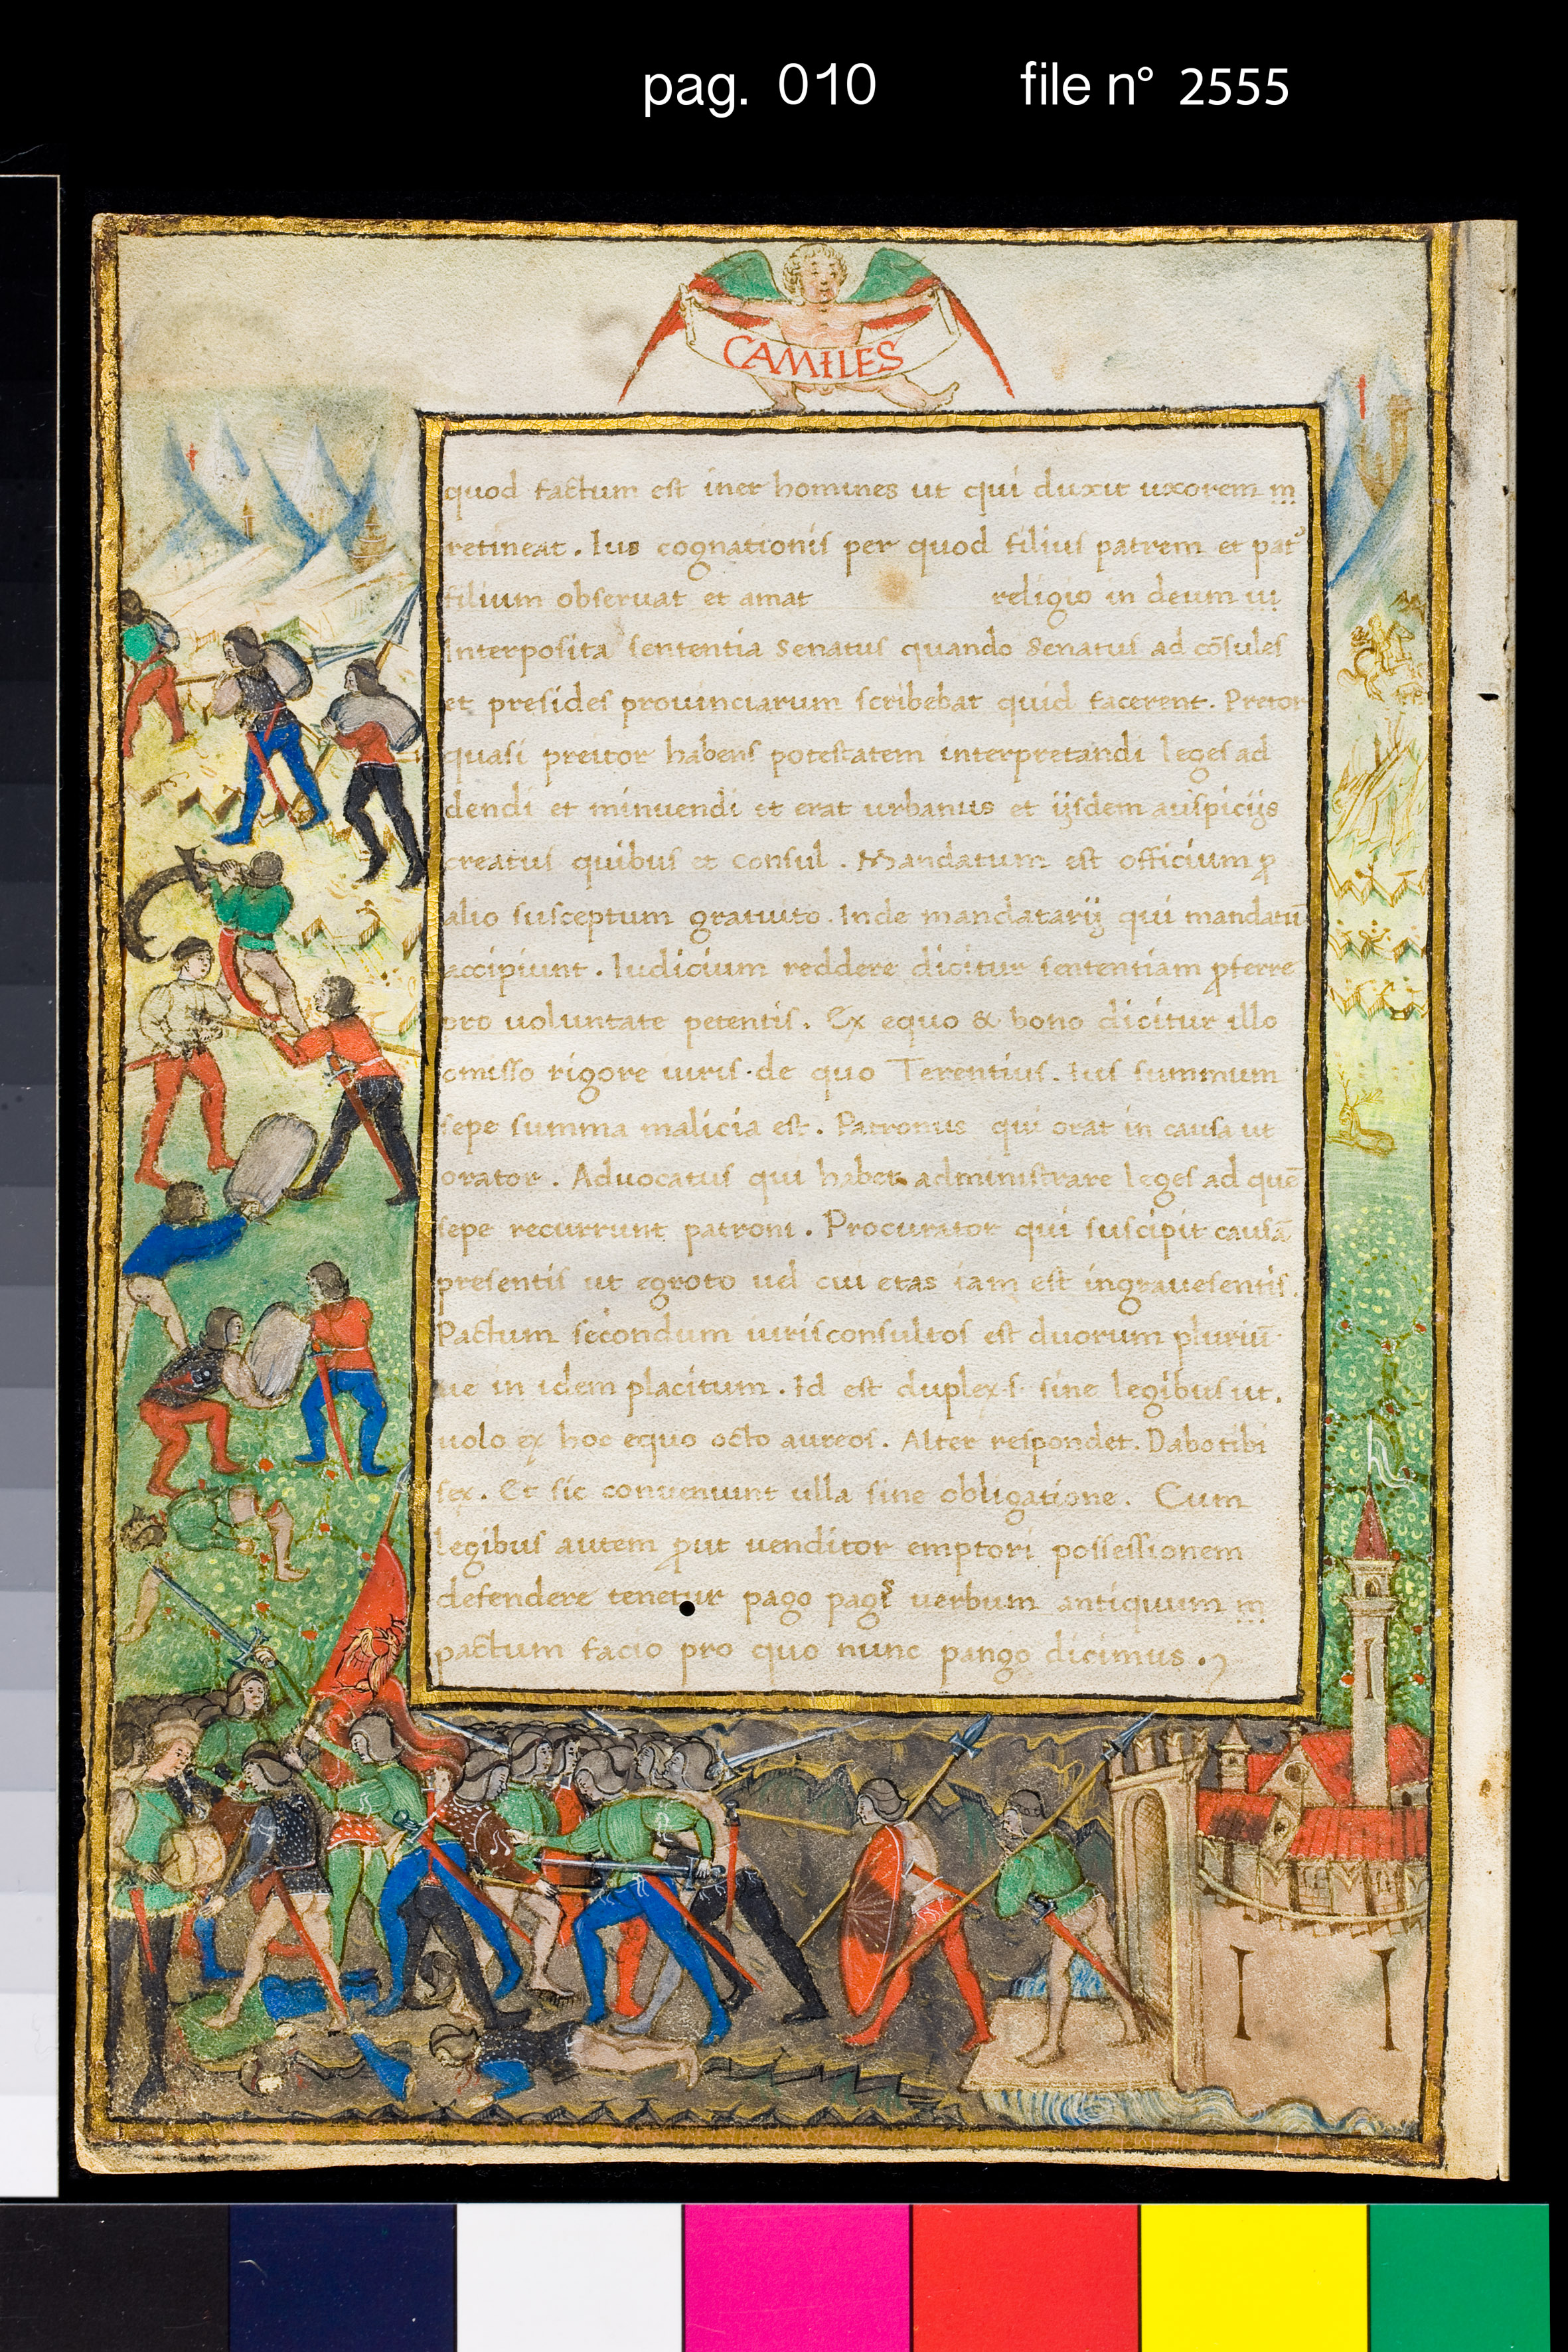 pag. 010 file n° 2555
CAMILES
quod factum est iner homines ut qui duxit uxorem m̄
retineat. Ius cognationis per quod filius patrem et pat᾿
filium observat et amat religio in deum ut
Interposita sententia Senatus quando Senatus ad cōsules
et presides provinciarum scribebat quid facerent. Pretor
quasi preitor habens potestatem interpretandi leges ad
dendi et minuendi et erat urbanus et ijsdem auspicijs
creatus quibus et consul. Mandatum est officium ꝓ
alio susceptum gratuito. Inde mandatarij qui mandatū
accipiunt. Iudicium reddere dicitur sententiam ꝓferre
pro uoluntate petentis. Ex equo & bono dicitur illo
omisso rigore iuris. de quo Terentius. Ius summum
sepe summa malicia est. Patronus qui orat in causa ut
orator. Aduocatus qui habet administrare leges ad quē
sepe recurrunt patroni. Procurator qui suscipit causā
presentis ut egroto uel cui etas iam est ingravesentis.
Pactum secondum iurisconsultos est duorum pluriū
ue in idem placitum. Id est duplex .s. sine legibus ut.
uolo ex hoc equo octo aureos. Alter respondet. Dabo tibi
sex. Et sic conveniunt ulla sine obligatione. Cum
legibus autem ꝓut venditor emptori possessionem
defendere tenetur pago pagis verbum antiquum
pactum facio pro quo nunc pango dicimus.